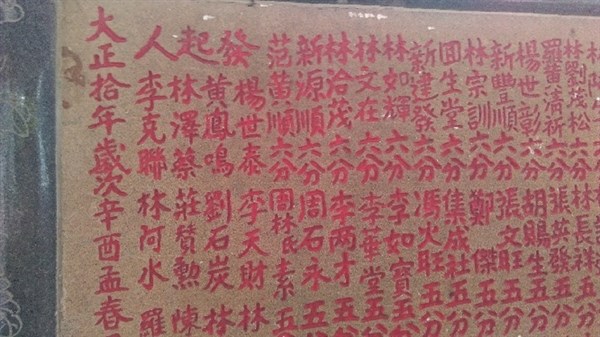 林劉茂松 六分 林長祥
羅黃濤祈 六分 張英發 五分
楊世彰 六分 胡賜生 五分
新豐順 六分 張文旺 五分
林宗訓 六分 鄭傑 五分
圓生堂 六分 集成社 五分
新建發 六分 馮火旺 五分
林如輝 六分 李如寶 五分
林文在 六分 李華堂 五分
林洽茂 六分 李两才 五分
新源順 六分 周石永 五分
范黃順 六分 周林氏素 五
發起人
楊世泰 李天財 林
黃鳳鳴 劉石炭 林
林澤蔡 莊贊勲 陳
李克聯 林阿水 羅
大正拾年歲次辛酉孟春